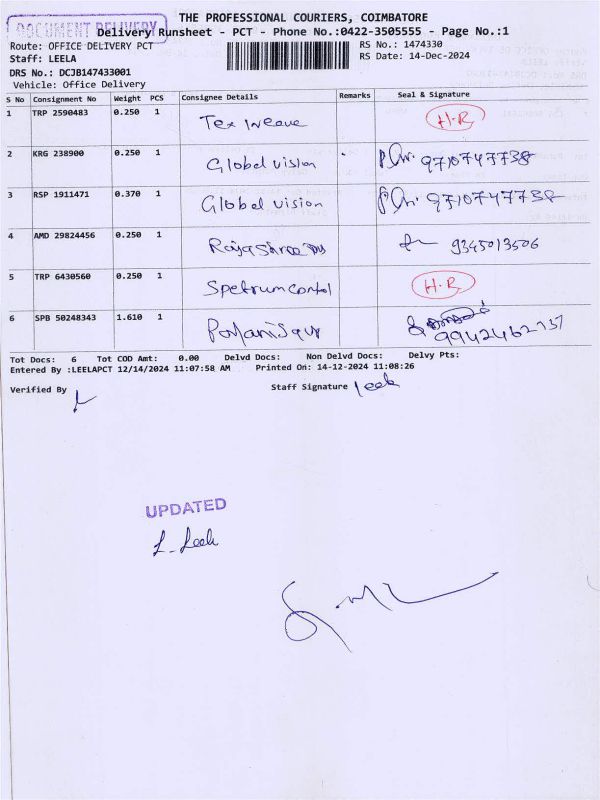 THE PROFESSIONAL COURIERS, COIMBATORE
DOCUMENT DELIVERY
Delivery Runsheet - PCT - Phone No.:0422-3505555 - Page No.:1
Route: OFFICE DELIVERY PCT RS No.: 1474330
Staff: LEELA RS Date: 14-Dec-2024
DRS No.: DCJB147433001
Vehicle: Office Delivery
S No Consignment No Weight PCS Consignee Details Remarks Seal & Signature
1 TRP 2590483 0.250 1 Tex Weave H.R
2 KRG 238900 0.250 1 Global vision 9710747738
3 RSP 1911471 0.370 1 Global vision 9710747738
4 AMD 29824456 0.250 1 9345013506
5 TRP 6430560 0.250 1 Spetrum contol H.R
6 SPB 50248343 1.610 1
Tot Docs: 6 Tot COD Amt: 0.00 Delvd Docs: Non Delvd Docs: Delvy Pts:
Entered By :LEELAPCT 12/14/2024 11:07:58 AM Printed On: 14-12-2024 11:08:26
Verified By Staff Signature Leela
UPDATED
L. Leela